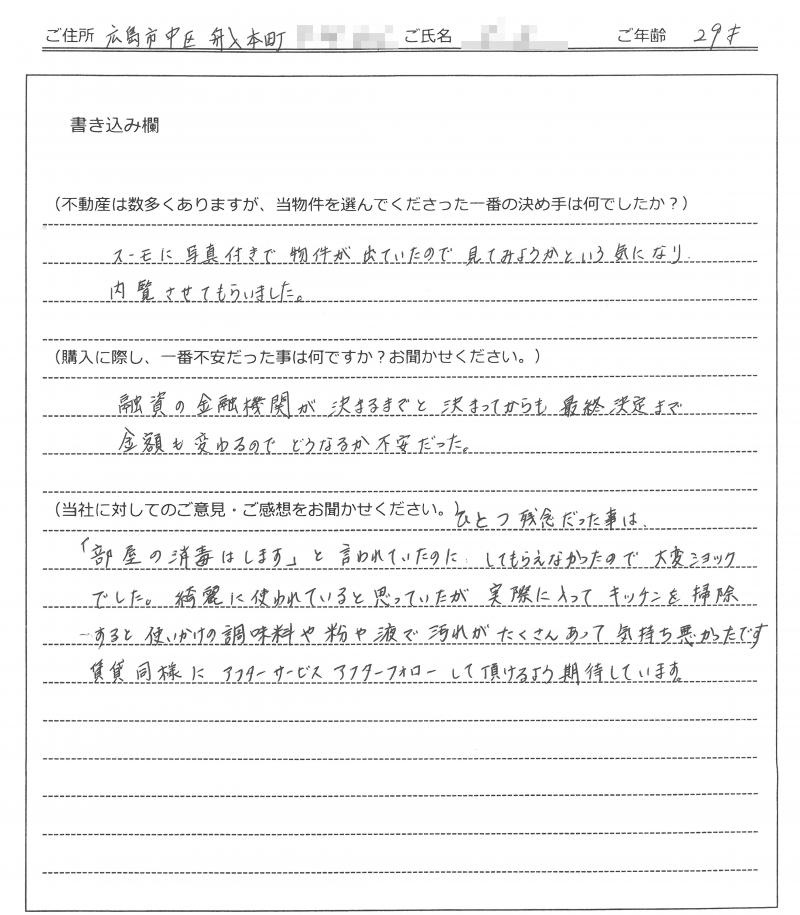 ご住所 広島市中区舟入本町 ご氏名 ご年齢 29才
書き込み欄
（不動産は数多くありますが、当物件を選んでくださった一番の決め手は何でしたか？）
スーモに写真付きで物件が出ていたので見てみようかという気になり
内覧させてもらいました。
（購入に際し、一番不安だった事は何ですか？お聞かせください。）
融資の金融機関が決まるまでと決まってからも最終決定まで
金額も変わるのでどうなるか不安だった。
（当社に対してのご意見・ご感想をお聞かせください。）ひとつ残念だった事は、
「部屋の消毒はします」と言われていたのに、してもらえなかったので大変ショック
でした。綺麗に使われていると思っていたが実際に入ってキッチンを掃除
すると使いかけの調味料や粉や液で汚れがたくさんあって気持ち悪かったです
賃貸同様にアフターサービスアフターフォローして頂けるよう期待しています。